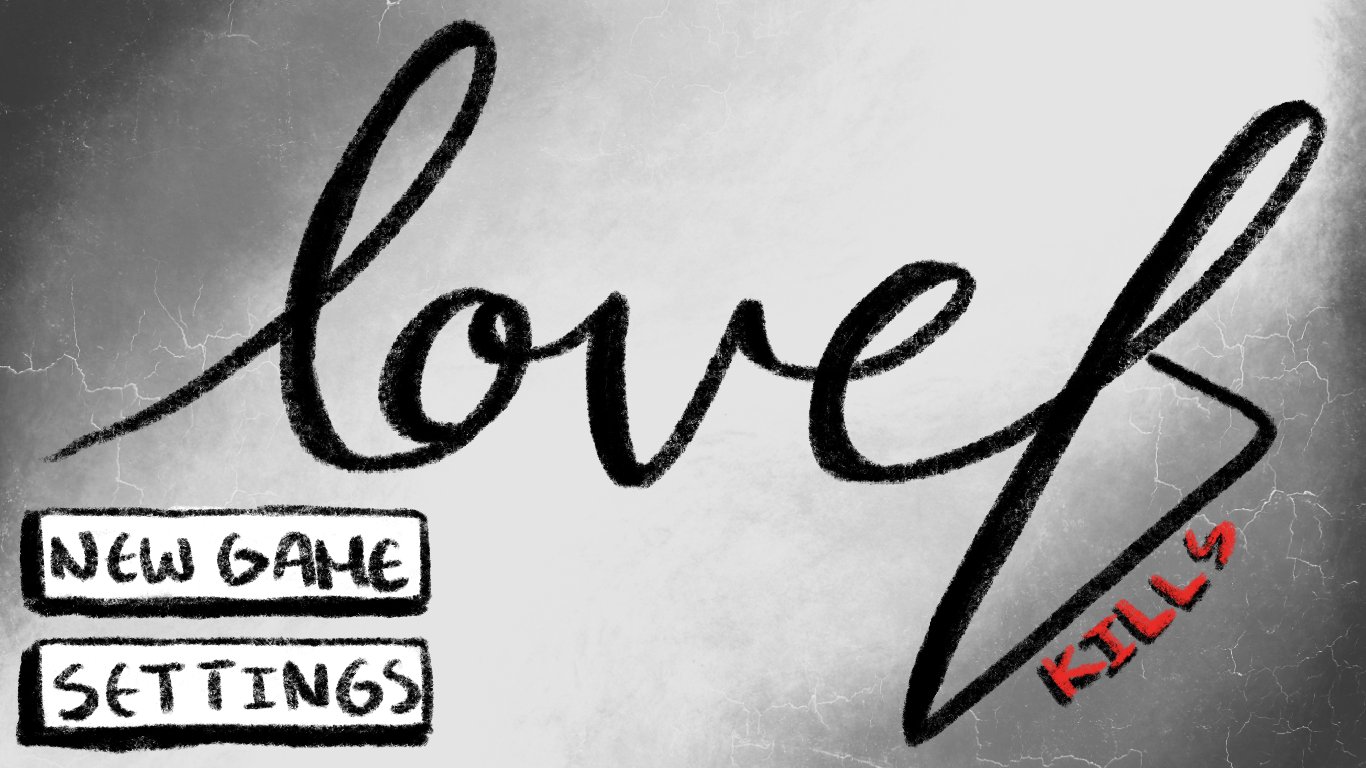 lovef
KILLS
NEW GAME
SETTINGS